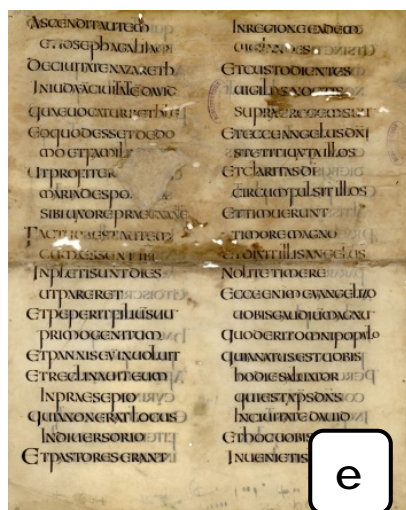 ASCENDITAUTEM
ETIOSEPHAGALILAEA
DECIUITATENAZARETH
INIUDAEACIUITATEDAUID
QUAEUOCATURBETHLE
EOQUODESSETDEDO
MOETFAMIL
UTPROFITE
MARIADESPO
SIBIUXOREPRAEGNANTE
FACTUMESTAUTEM
CUMESSENTIBI
INPLETISUNTDIES
UTPARERET
ETPEPERITFILIUMSUU
PRIMOGENITUM
ETPANNISEUMINUOLUIT
ETRECLINAUITEUM
INPRAESEPIO
QUIANONERATLOCUS
INDIUERSORIO
ETPASTORESERANT
INREGIONEEADEM
UIGILANTES
ETCUSTODIENTES
UIGILIASNOCTIS
SUPRAGREGEMSUU
ETECCEANGELUSDNI
STETITIUXTAILLOS
ETCLARITASDI
CIRCUMFULSITILLOS
ETTIMUERUNT
TIMOREMAGNO
ETDIXITILLISANGELUS
NOLITETIMERE
ECCEENIMEUANGELIZO
UOBISGAUDIUMMAGNU
QUODERITOMNIPOPULO
QUIANATUSESTUOBIS
HODIESALUATOR
QUIESTXPSDNS
INCIUITATEDAUID
ETHOCUOBIS
INUENIETIS
e